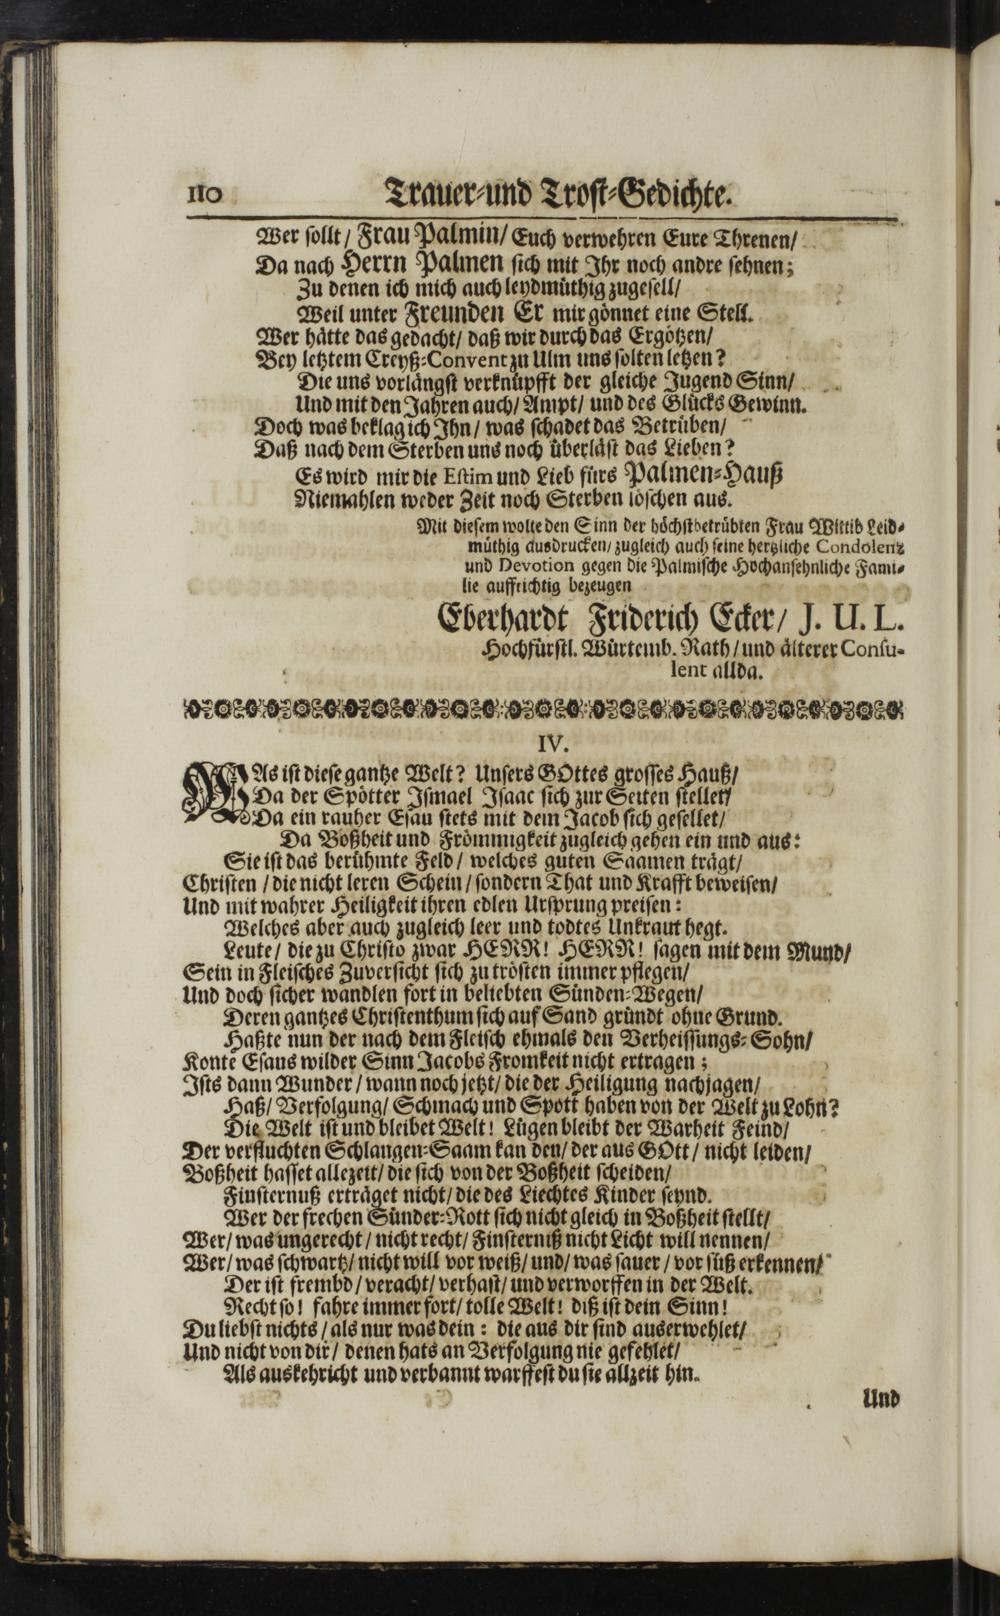 110 Trauer-und Trost-Gedichte.
Wer sollt / Frau Palmin / Euch verwehren Eure Threnen /
Da nach Herrn Palmen sich mit Ihr noch andre sehnen;
Zu denen ich mich auch leydmüthig zugesell /
Weil unter Freunden Er mir gönnet eine Stell.
Wer hätte das gedacht / daß wir durch das Ergötzen /
Bey letztem Creyß-Convent zu Ulm uns solten letzen?
Die uns vorlängst verknüpfft der gleiche Jugend Sinn /
Und mit den Jahren auch / Ampt / und des Glücks Gewinn.
Doch was beklag ich Ihn / was schadet das Betrüben /
Daß nach dem Sterben uns noch überläst das Lieben?
Es wird mir die Estim und Lieb fürs Palmen-Hauß
Niemahlen weder Zeit noch Sterben löschen aus.
Mit diesem wolte den Sinn der höchstbetrübten Frau Wittib Leid-
müthig ausdrucken / zugleich auch seine hertzliche Condolenz
und Devotion gegen die Palmische Hochansehnliche Fami-
lie auffrichtig bezeugen
Eberhardt Friderich Ecker / J. U. L.
Hochfürstl. Würtemb. Rath / und älterer Consu-
lent allda.
IV.
WAs ist diese gantze Welt? Unsers GOttes grosses Hauß /
Da der Spötter Ismael Isaac sich zur Seiten stellet /
Da ein rauher Esau stets mit dem Jacob sich gesellet /
Da Boßheit und Frömmigkeit zugleich gehen ein und aus:
Sie ist das berühmte Feld / welches guten Saamen trägt /
Christen / die nicht leren Schein / sondern That und Krafft beweisen /
Und mit wahrer Heiligkeit ihren edlen Ursprung preisen:
Welches aber auch zugleich leer und todtes Unkraut hegt.
Leute / die zu Christo zwar HERR! HERR! sagen mit dem Mund /
Sein in Fleisches Zuversicht sich zu trösten immer pflegen /
Und doch sicher wandlen fort in beliebten Sünden-Wegen /
Deren gantzes Christenthum sich auf Sand gründt ohne Grund.
Haßte nun der nach dem Fleisch ehmals den Verheissungs-Sohn /
Konte Esaus wilder Sinn Jacobs Fromkeit nicht ertragen;
Ists dann Wunder / wann noch jetzt / die der Heiligung nachjagen /
Haß / Verfolgung / Schmach und Spott haben von der Welt zu Lohn?
Die Welt ist und bleibet Welt! Lügen bleibt der Warheit Feind /
Der verfluchten Schlangen-Saam kan den / der aus GOtt / nicht leiden /
Boßheit hasset allezeit / die sich von der Boßheit scheiden /
Finsternuß erträget nicht / die des Liechtes Kinder seynd.
Wer der frechen Sünder-Rott sich nicht gleich in Boßheit stellt /
Wer / was ungerecht / nicht recht / Finsterniß nicht Licht will nennen /
Wer / was schwartz / nicht will vor weiß / und / was sauer / vor süß erkennen /
Der ist frembd / veracht / verhast / und verworffen in der Welt.
Recht so! fahre immer fort / tolle Welt! diß ist dein Sinn!
Du liebst nichts / als nur was dein: die aus dir sind auserwehlet /
Und nicht von dir / denen hats an Verfolgung nie gefehlet /
Als auskehricht und verbannt warffest du sie allzeit hin.
Und